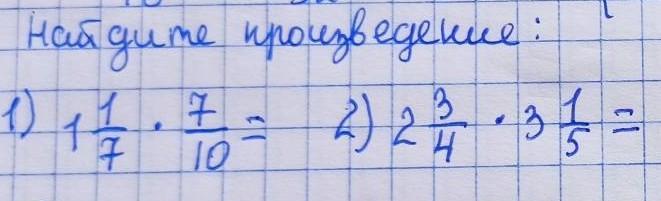 Найдите произведение:
1) 1 1/7 · 7/10 = 2) 2 3/4 · 3 1/5 =